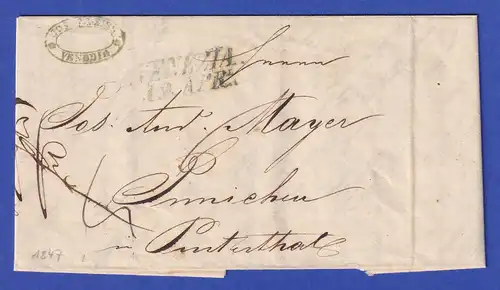 VENEDIG
VENEZIA
Herrn
19. APR.
Jos. And. Mayer
Innichen
in Pusterthal
1847